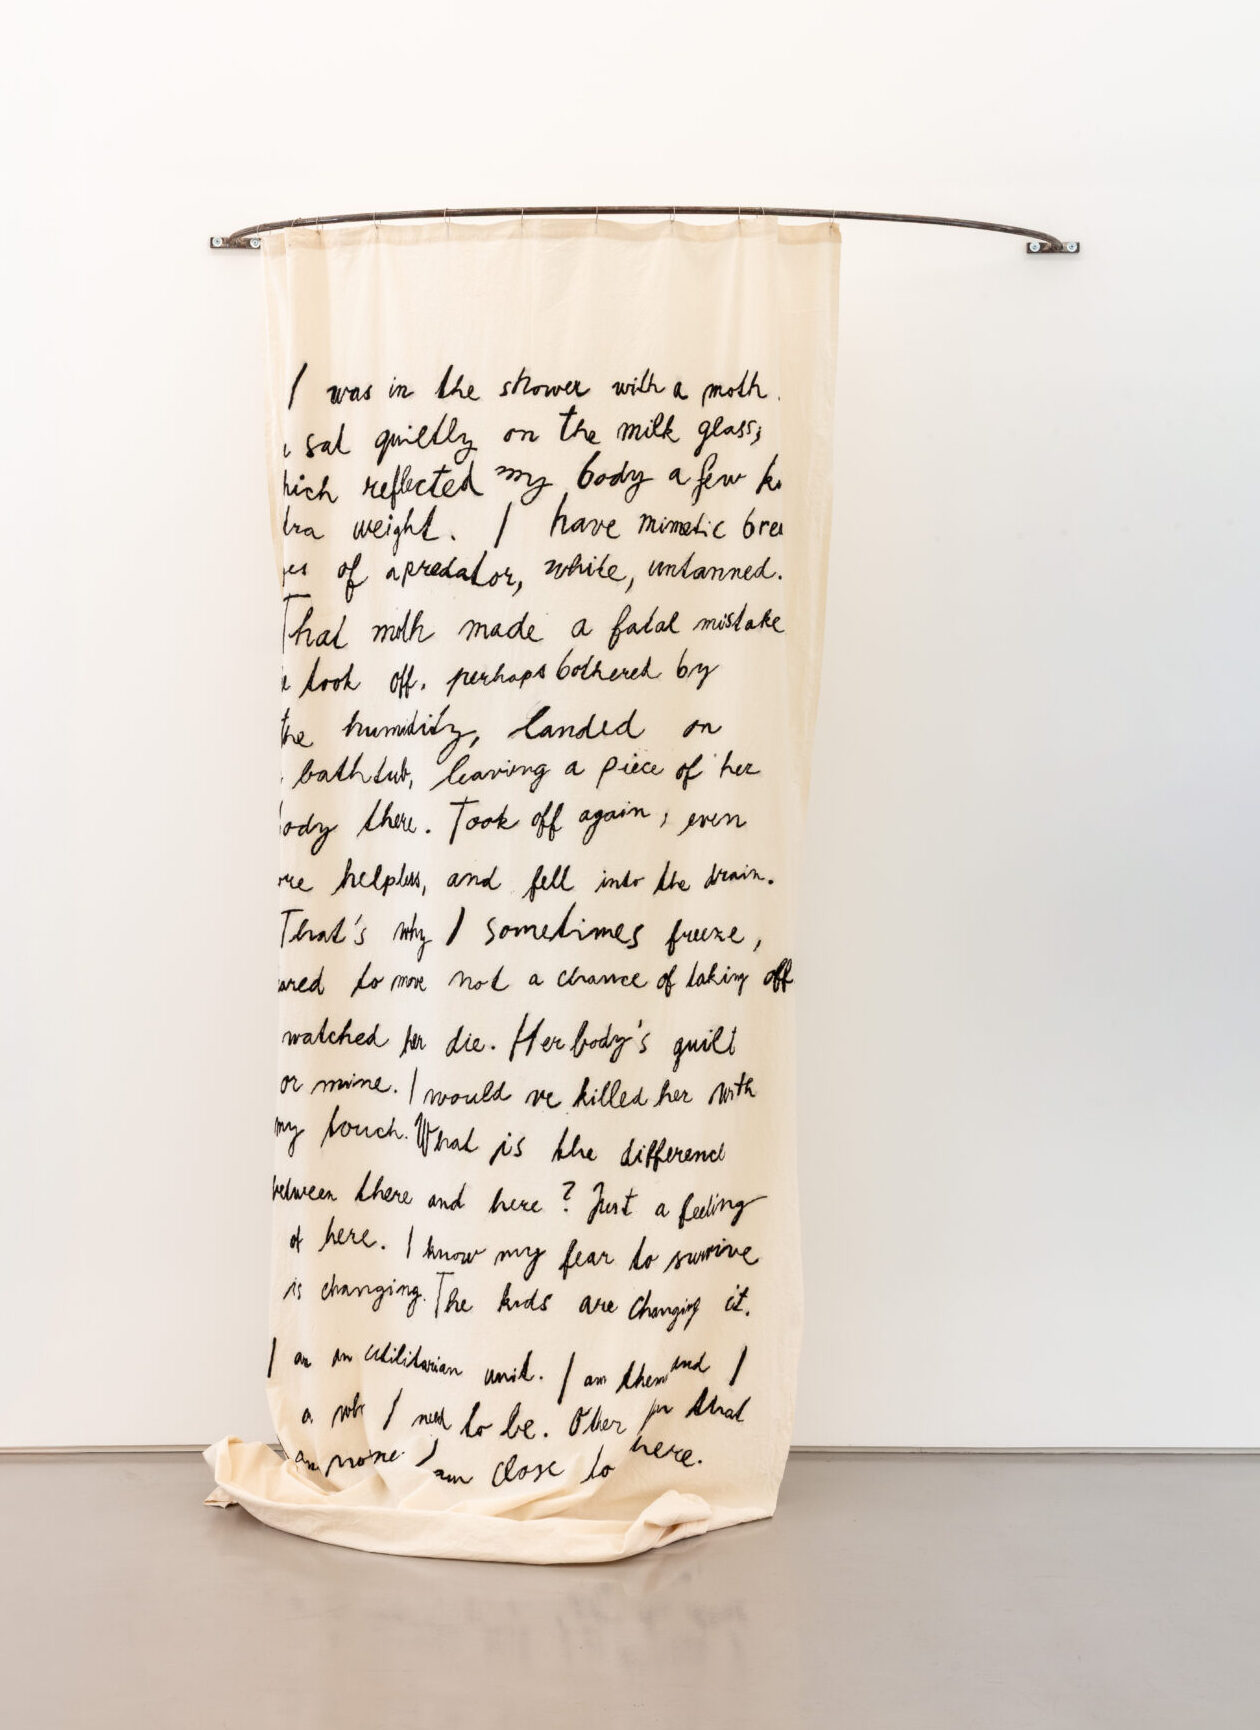 I was in the shower with a moth.
sat quietly on the milk glass,
hich reflected my body a few
tra weight. I have mimetic
of a predator, white, untanned.
That moth made a fatal mistake
took off. perhaps bothered by
the humidity, landed on
bathtub, leaving a piece of her
ody there. Took off again, even
ore helpless, and fell into the drain.
That's why I sometimes freeze,
ared to move not a chance of taking off
watched her die. Her body's guilt
or mine. I would ve killed her with
my touch. What is the difference
between there and here? Just a feeling
of here. I know my fear to survive
is changing. The kids are changing it.
I am an utilitarian unit. I am them and I
a who I need to be. Other that
am none. I am close to here.